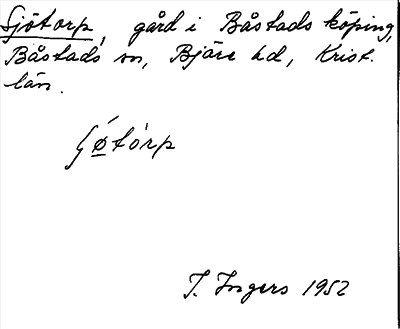 Sjötorp, gård i Båstads köping,
Båstads sn, Bjäre hd, Krist.
län.
ʃǿtòrp
I. Ingers 1952